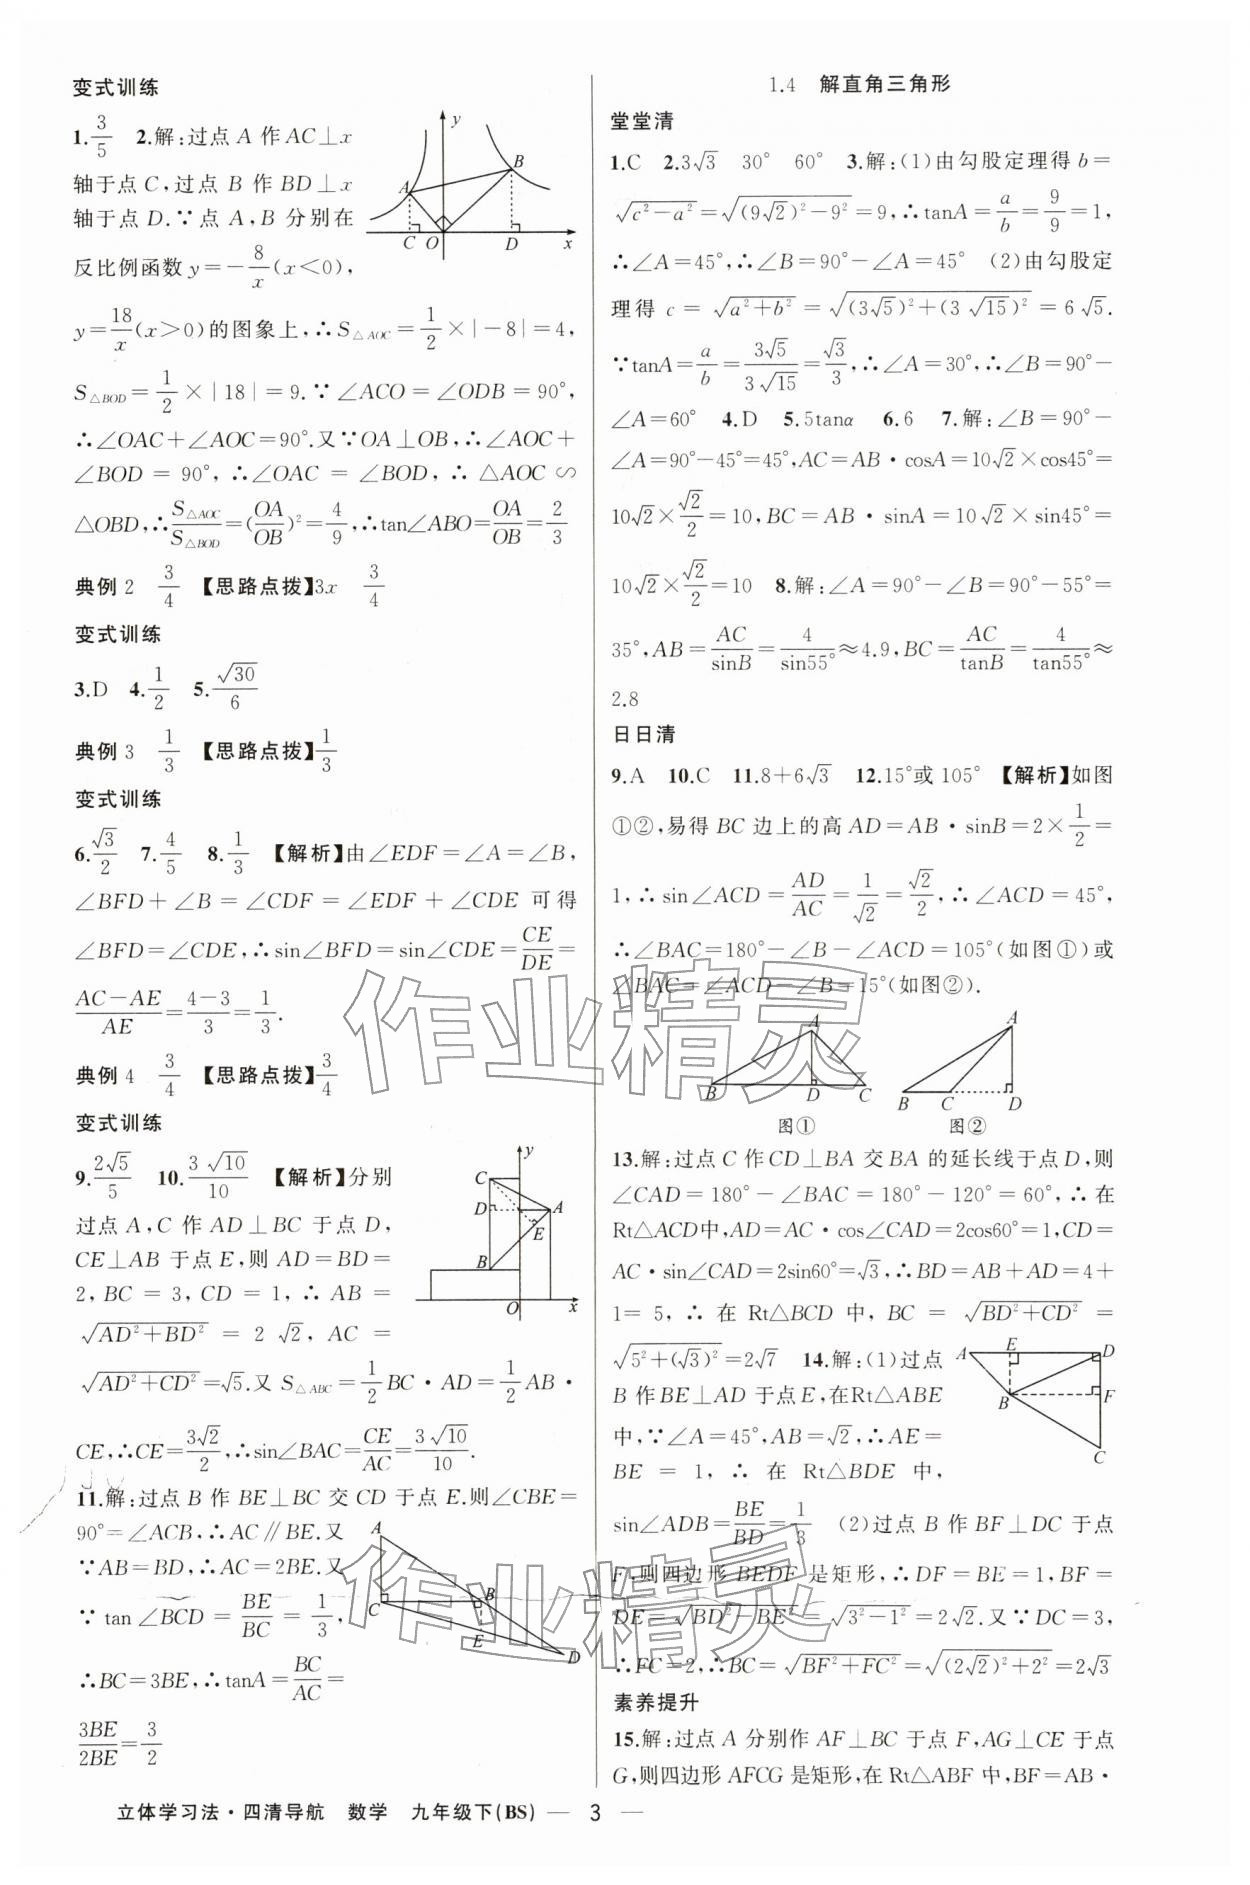 变式训练
1. 3/5 2.解:过点 A 作 AC⊥x
轴于点 C,过点 B 作 BD⊥x
轴于点 D.∵点 A,B 分别在
反比例函数 y=-8/x(x<0),
y=18/x(x>0)的图象上,∴S△AOC=1/2×|-8|=4,
S△BOD=1/2×|18|=9.∵∠ACO=∠ODB=90°,
∴∠OAC+∠AOC=90°.又∵OA⊥OB,∴∠AOC+
∠BOD=90°,∴∠OAC=∠BOD,∴△AOC∽
△OBD,∴S△AOC/S△BOD=(OA/OB)²=4/9,∴tan∠ABO=OA/OB=2/3
典例 2 3/4 【思路点拨】3x 3/4
变式训练
3.D 4. 1/2 5. √30/6
典例 3 1/3 【思路点拨】1/3
变式训练
6. √3/2 7. 4/5 8. 1/3 【解析】由∠EDF=∠A=∠B,
∠BFD+∠B=∠CDF=∠EDF+∠CDE 可得
∠BFD=∠CDE,∴sin∠BFD=sin∠CDE=CE/DE=
(AC-AE)/AE=(4-3)/3=1/3.
典例 4 3/4 【思路点拨】3/4
变式训练
9. 2√5/5 10. 3√10/10 【解析】分别
过点 A,C 作 AD⊥BC 于点 D,
CE⊥AB 于点 E,则 AD=BD=
2,BC=3,CD=1,∴AB=
√(AD²+BD²)=2√2,AC=
√(AD²+CD²)=√5.又 S△ABC=1/2 BC·AD=1/2 AB·
CE,∴CE=3√2/2,∴sin∠BAC=CE/AC=3√10/10.
11.解:过点 B 作 BE⊥BC 交 CD 于点 E.则∠CBE=
90°=∠ACB,∴AC∥BE.又
∵AB=BD,∴AC=2BE.又
∵tan∠BCD=BE/BC=1/3,
∴BC=3BE,∴tanA=BC/AC=
3BE/2BE=3/2
y
B
A
C O D x
y
C
D A
E
B
O x
A
C B
E
D
1.4 解直角三角形
堂堂清
1.C 2.3√3 30° 60° 3.解:(1)由勾股定理得 b=
√(c²-a²)=√((9√2)²-9²)=9,∴tanA=a/b=9/9=1,
∴∠A=45°,∴∠B=90°-∠A=45° (2)由勾股定
理得 c=√(a²+b²)=√((3√5)²+(3√15)²)=6√5.
∵tanA=a/b=3√5/3√15=√3/3,∴∠A=30°,∴∠B=90°-
∠A=60° 4.D 5.5tanα 6.6 7.解:∠B=90°-
∠A=90°-45°=45°,AC=AB·cosA=10√2×cos45°=
10√2×√2/2=10,BC=AB·sinA=10√2×sin45°=
10√2×√2/2=10 8.解:∠A=90°-∠B=90°-55°=
35°,AB=AC/sinB=4/sin55°≈4.9,BC=AC/tanB=4/tan55°≈
2.8
日日清
9.A 10.C 11.8+6√3 12.15°或105° 【解析】如图
①②,易得 BC 边上的高 AD=AB·sinB=2×1/2=
1,∴sin∠ACD=AD/AC=1/√2=√2/2,∴∠ACD=45°,
∴∠BAC=180°-∠B-∠ACD=105°(如图①)或
∠BAC=∠ACD-∠B=15°(如图②).
A
B D C
图①
A
B C D
图②
13.解:过点 C 作 CD⊥BA 交 BA 的延长线于点 D,则
∠CAD=180°-∠BAC=180°-120°=60°,∴在
Rt△ACD中,AD=AC·cos∠CAD=2cos60°=1,CD=
AC·sin∠CAD=2sin60°=√3,∴BD=AB+AD=4+
1=5,∴在 Rt△BCD 中,BC=√(BD²+CD²)=
√(5²+(√3)²)=2√7 14.解:(1)过点
B 作 BE⊥AD 于点 E,在Rt△ABE
中,∵∠A=45°,AB=√2,∴AE=
BE=1,∴在 Rt△BDE 中,
sin∠ADB=BE/BD=1/3 (2)过点 B 作 BF⊥DC 于点
F,则四边形 BEDF 是矩形,∴DF=BE=1,BF=
DE=√(BD²-BE²)=√(3²-1²)=2√2.又∵DC=3,
∴FC=2,∴BC=√(BF²+FC²)=√((2√2)²+2²)=2√3
A E D
B F
C
素养提升
15.解:过点 A 分别作 AF⊥BC 于点 F,AG⊥CE 于点
G,则四边形 AFCG 是矩形,在 Rt△ABF 中,BF=AB·
立体学习法·四清导航 数学 九年级下(BS) — 3 —
作业精灵
作业精灵